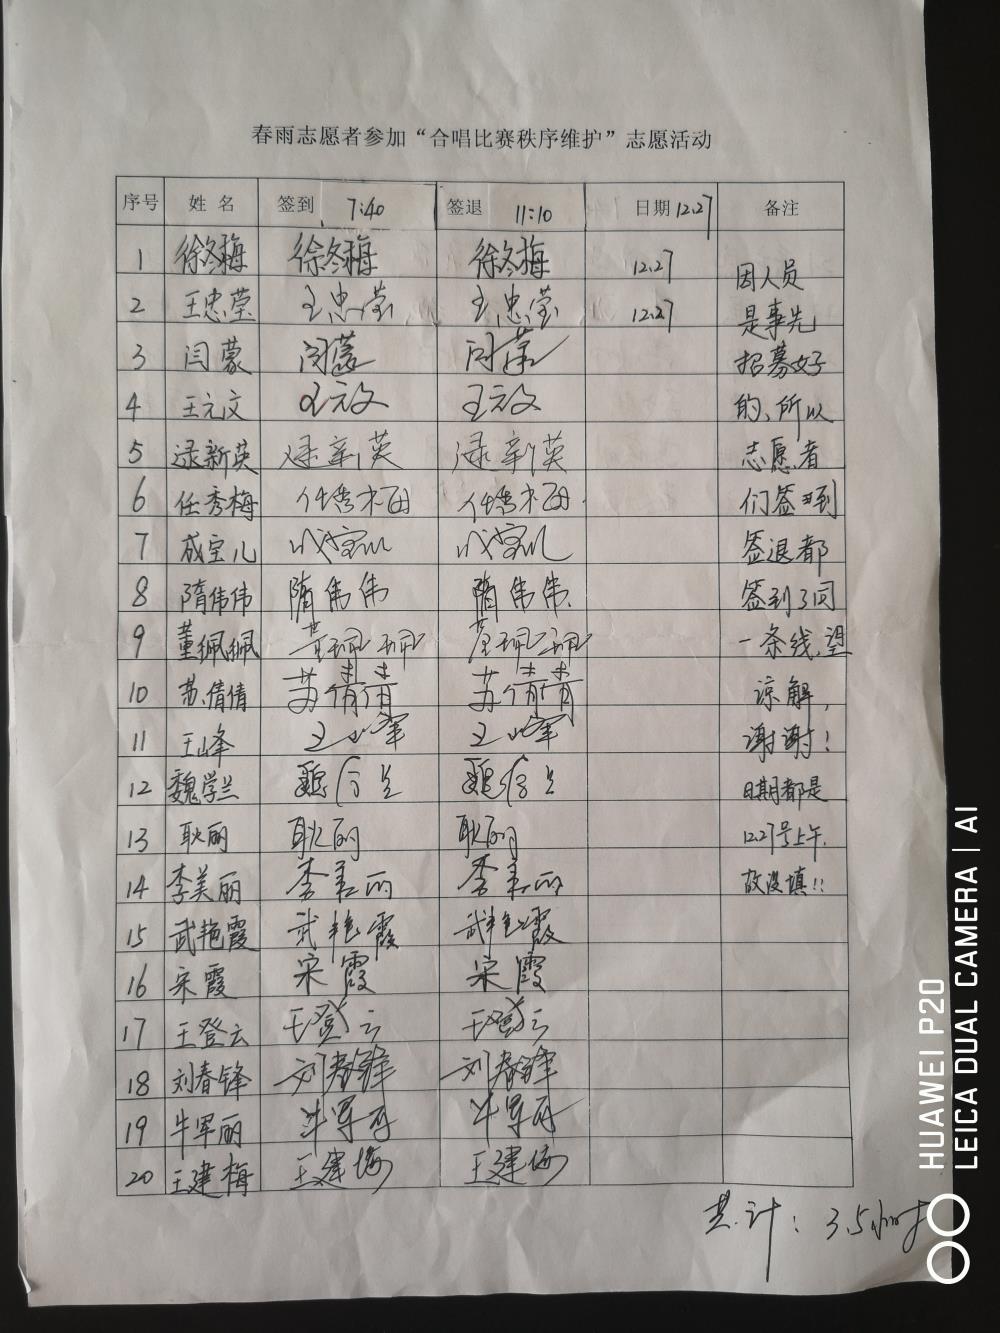 春雨志愿者参加“合唱比赛秩序维护”志愿活动
序号 姓名 签到 7:40 签退 11:10 日期 12.27 备注
1 徐冬梅 徐冬梅 徐冬梅 12.27 因人员
2 王忠莹 王忠莹 王忠莹 12.27 是事先
3 闫蒙 闫蒙 闫蒙 招募好
4 王元文 王元文 王元文 的、所以
5 逯新英 逯新英 逯新英 志愿者
6 任秀梅 任秀梅 任秀梅 们签到
7 成宝儿 成宝儿 成宝儿 签退都
8 隋伟伟 隋伟伟 隋伟伟 签到了同
9 董佩佩 董佩佩 董佩佩 一条线,望
10 苏倩倩 苏倩倩 苏倩倩 谅解,
11 王峰 王峰 王峰 谢谢!
12 魏学兰 魏学兰 魏学兰 日期都是
13 耿丽 耿丽 耿丽 12.27号上午,
14 李美丽 李美丽 李美丽 故没填!!
15 武艳霞 武艳霞 武艳霞
16 宋霞 宋霞 宋霞
17 王登云 王登云 王登云
18 刘春锋 刘春锋 刘春锋
19 牛军丽 牛军丽 牛军丽
20 王建梅 王建梅 王建梅
共计:3.5小时
HUAWEI P20
LEICA DUAL CAMERA | AI